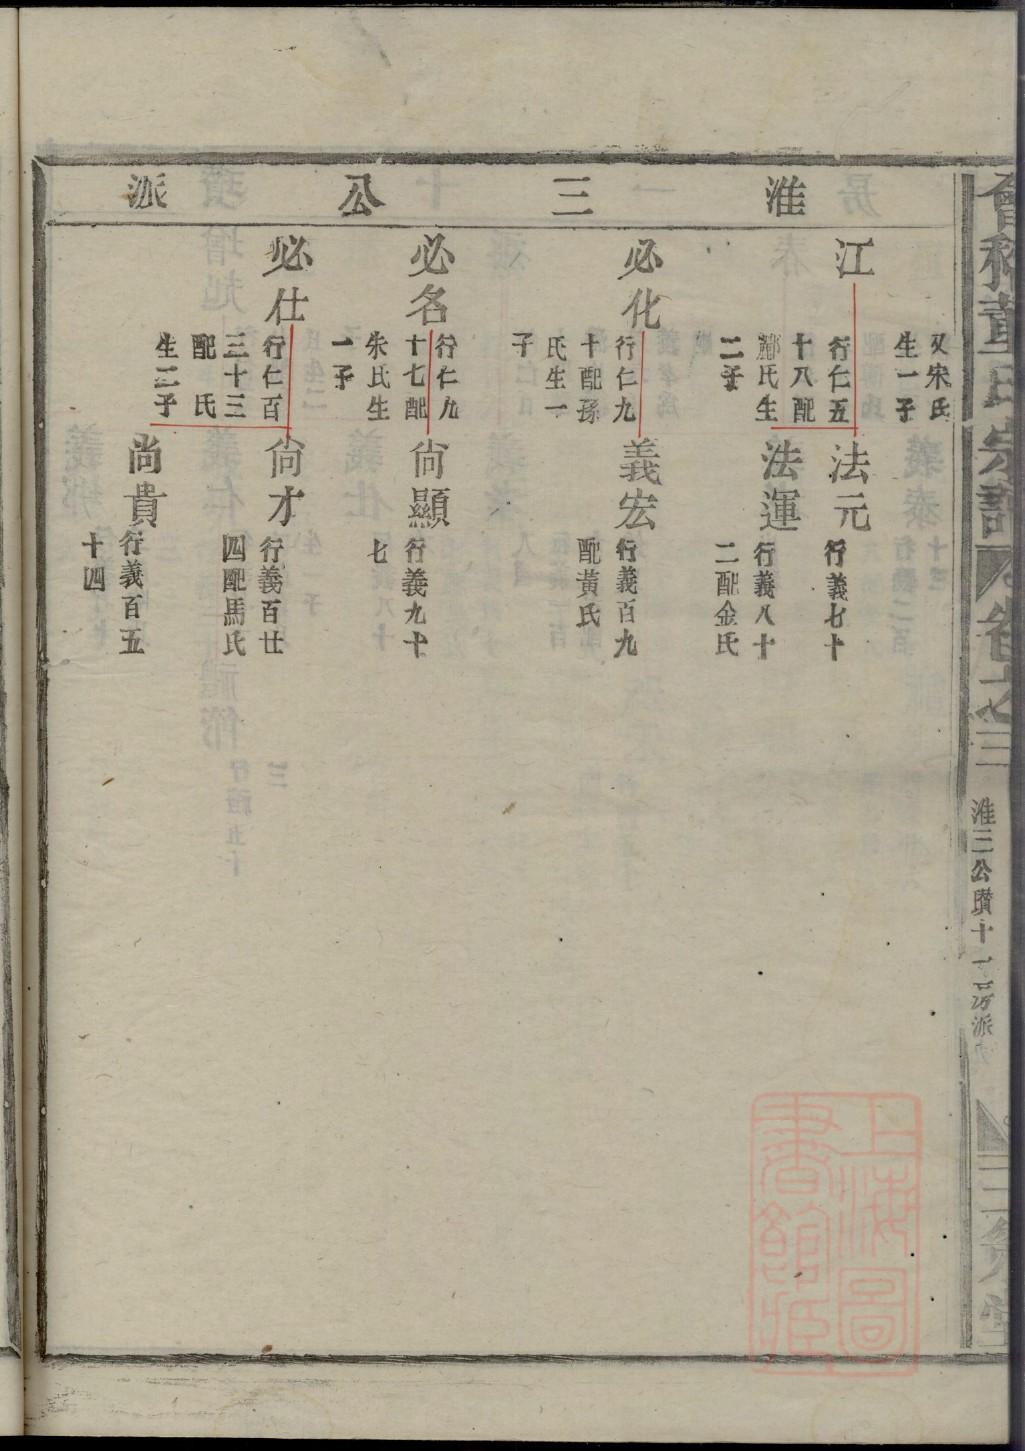 淮三公派
又宋氏
生一子
江
行仁五
十八配
酈氏生
二子
法元
行義七十
法運
行義八十
二配金氏
必化
行仁九
十配孫
氏生一
子
義宏
行義百九
配黃氏
必名
行仁九
十七配
朱氏生
一子
尙顯
行義九十
七
必仕
行仁百
三十三
配氏
生二子
尙才
行義百廿
四配馬氏
尚貴
行義百五
十四
會稽董氏宗譜
卷之三
淮三公瓚十一房派
三策堂
上海圖
書館藏